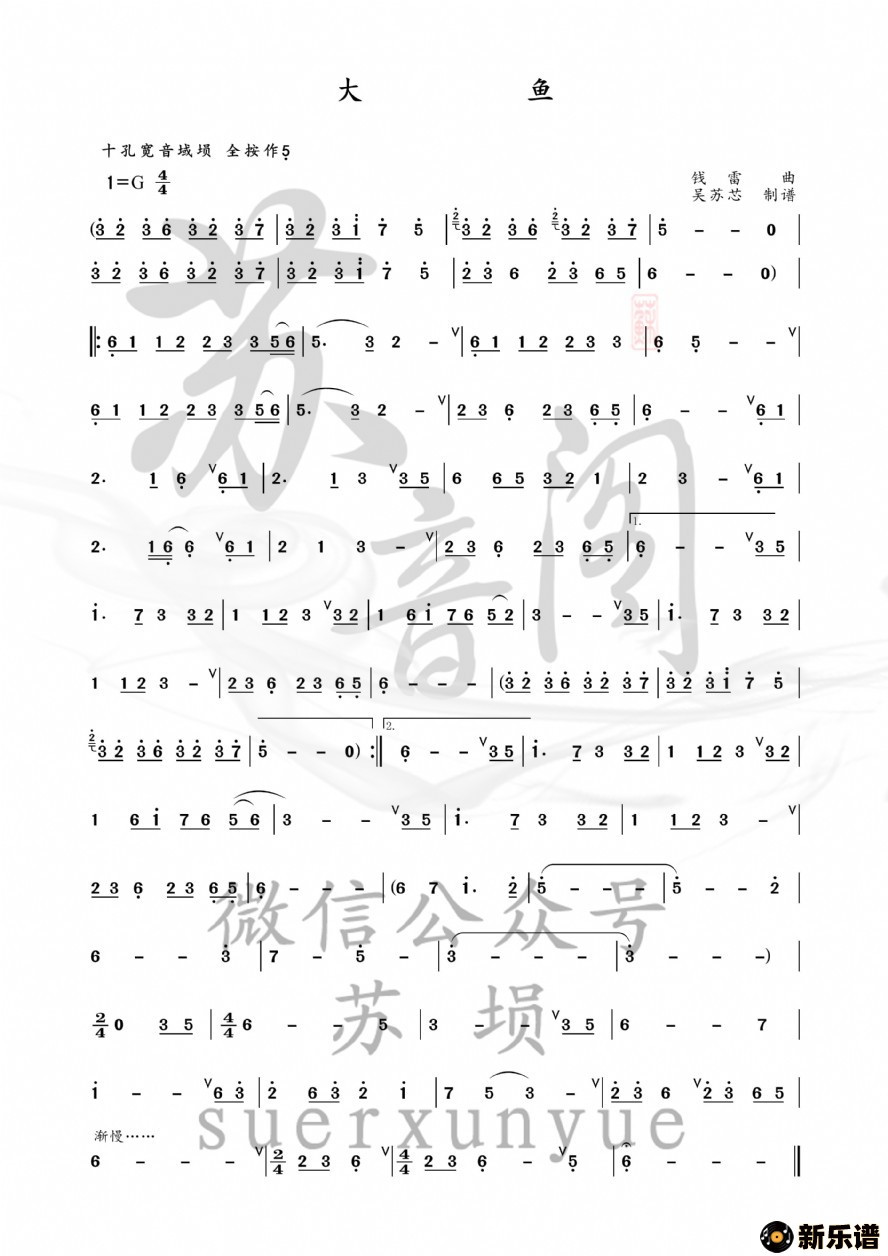 大 鱼
十孔宽音域埙 全按作5̣
1=G 4/4
钱 雷 曲
吴苏芯 制谱
(3̇ 2̇ 3̇ 6̇ 3̇ 2̇ 3̇ 7̇ | 3̇ 2̇ 3̇ i̇ 7̇ 5̇ | 2̇ 3̇ 2̇ 3̇ 6̇ 2̇ 3̇ 2̇ 3̇ 7̇ | 5̇ - - 0 |
3̇ 2̇ 3̇ 6̇ 3̇ 2̇ 3̇ 7̇ | 3̇ 2̇ 3̇ i̇ 7̇ 5̇ | 2̇ 3̇ 6 2̇ 3̇ 6 5 | 6 - - 0) |
‖: 6̣ 1 1 2 2 3 3 5 6 | 5. 3 2 - ∨ | 6̣ 1 1 2 2 3 3 | 6̣ 5̣ - - ∨ |
6̣ 1 1 2 2 3 3 5 6 | 5. 3 2 - ∨ | 2 3 6̣ 2 3 6̣ 5̣ | 6̣ - - ∨ 6̣ 1 |
2. 1 6̣ ∨ 6̣ 1 | 2. 1 3 ∨ 3 5 | 6 6 5 3 2 1 | 2 3 - ∨ 6̣ 1 |
1.
2. 1 6̣ 6̣ ∨ 6̣ 1 | 2 1 3 - ∨ | 2 3 6̣ 2 3 6̣ 5̣ | 6̣ - - ∨ 3 5 |
i. 7 3 3 2 | 1 1 2 3 ∨ 3 2 | 1 6 i 7 6 5 2 | 3 - - ∨ 3 5 | i. 7 3 3 2 |
1 1 2 3 - ∨ | 2 3 6̣ 2 3 6̣ 5̣ | 6̣ - - - | (3̇ 2̇ 3̇ 6̇ 3̇ 2̇ 3̇ 7̇ | 3̇ 2̇ 3̇ i̇ 7̇ 5̇ |
2.
2̇ 3̇ 2̇ 3̇ 6̇ 3̇ 2̇ 3̇ 7̇ | 5̇ - - 0) :‖ 6̣ - - ∨ 3 5 | i. 7 3 3 2 | 1 1 2 3 ∨ 3 2 |
1 6 i 7 6 5 6 | 3 - - ∨ 3 5 | i. 7 3 3 2 | 1 1 2 3 - ∨ |
2 3 6̣ 2 3 6̣ 5̣ | 6̣ - - - | (6 7 i. 2̇ | 5̇ - - - | 5̇ - - 2̇ |
6 - - 3̇ | 7 - 5̇ - | 3̇ - - - | 3̇ - - -) |
2/4 0 3 5 | 4/4 6 - - 5 | 3 - - ∨ 3 5 | 6 - - 7 |
i - - ∨ 6 3̇ | 2̇ 6 3̇ 2̇ i | 7 5 3 - ∨ | 2̇ 3̇ 6 2̇ 3̇ 6 5 |
渐慢……
6 - - - ∨ | 2/4 2 3 6̣ ∨ | 4/4 2 3 6̣ - ∨ 5̣ | 6̣ - - - ‖
苏
音阁
微信公众号
苏埙
suerxunyue
新乐谱